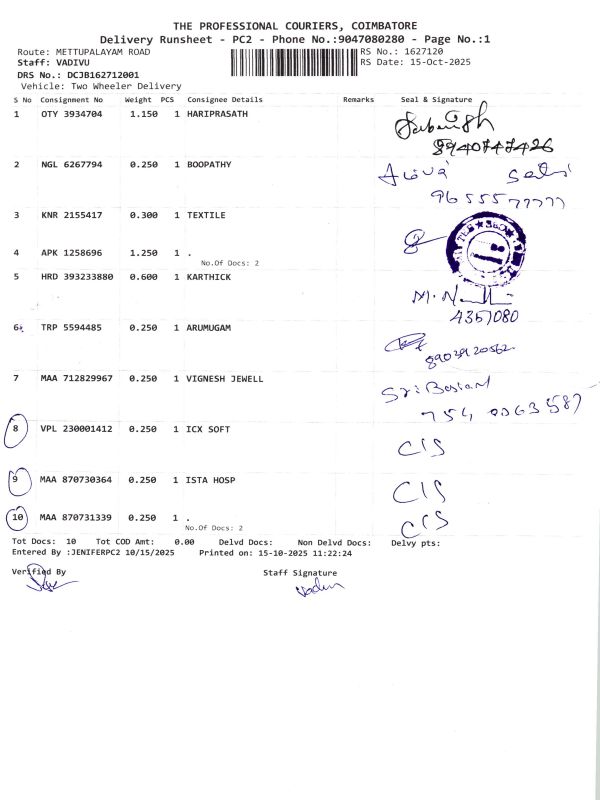 THE PROFESSIONAL COURIERS, COIMBATORE
Delivery Runsheet - PC2 - Phone No.:9047080280 - Page No.:1
Route: METTUPALAYAM ROAD RS No.: 1627120
Staff: VADIVU RS Date: 15-Oct-2025
DRS No.: DCJB162712001
Vehicle: Two Wheeler Delivery
S No Consignment No Weight PCS Consignee Details Remarks Seal & Signature
1 OTY 3934704 1.150 1 HARIPRASATH
8940747426
2 NGL 6267794 0.250 1 BOOPATHY
9655577777
3 KNR 2155417 0.300 1 TEXTILE
4 APK 1258696 1.250 1 .
No.Of Docs: 2
5 HRD 393233880 0.600 1 KARTHICK
4357080
6 TRP 5594485 0.250 1 ARUMUGAM
8903920562
7 MAA 712829967 0.250 1 VIGNESH JEWELL
8 VPL 230001412 0.250 1 ICX SOFT
CIS
9 MAA 870730364 0.250 1 ISTA HOSP
CIS
10 MAA 870731339 0.250 1 .
CIS
No.Of Docs: 2
Tot Docs: 10 Tot COD Amt: 0.00 Delvd Docs: Non Delvd Docs: Delvy pts:
Entered By :JENIFERPC2 10/15/2025 Printed on: 15-10-2025 11:22:24
Verified By Staff Signature